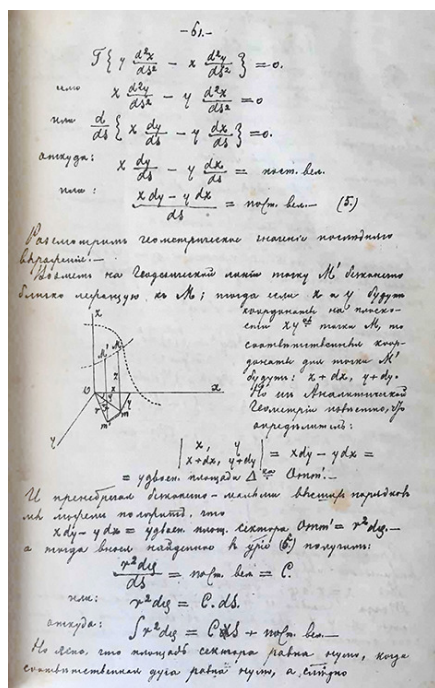 -61.-
T{ y d²x/ds² - x d²y/ds² } = 0.
или x d²y/ds² - y d²x/ds² = 0
или d/ds { x dy/ds - y dx/ds } = 0.
откуда: x dy/ds - y dx/ds = пост. вел.
или: (x dy - y dx)/ds = пост. вел.- (5.)
Разсмотримъ геометрическое значеніе послѣдняго
выраженія.-
Возьмемъ на Геодезической линіи точку M' безконечно
близко лежащую къ M; тогда если x и y будутъ
координаты на плоскости
XY точки M, то
соотвѣтственныя координаты
для точки M'
будутъ: x + dx, y + dy.
Но изъ Аналитической
Геометріи извѣстно, что
опредѣлитель:
z
x
M' M
z
O x
y
r
m' m
y
| x, y
x+dx, y+dy | = xdy - ydx =
= удвоен. площади Δ Omm'.-
И пренебрегая безконечно-малыми высшихъ порядковъ
мы можемъ положить, что
xdy - ydx = удвоен. площ. сектора Omm' = r²dφ.-
а тогда внося найденное въ ур-іе (5.) получимъ:
r²dφ/ds = пост. вел. = C.
или: r²dφ = C.ds.
откуда: ∫r²dφ = CS + пост. вел.-
Но ясно, что площадь сектора равна нулю, когда
соотвѣтственная дуга равна нулю, а слѣдно